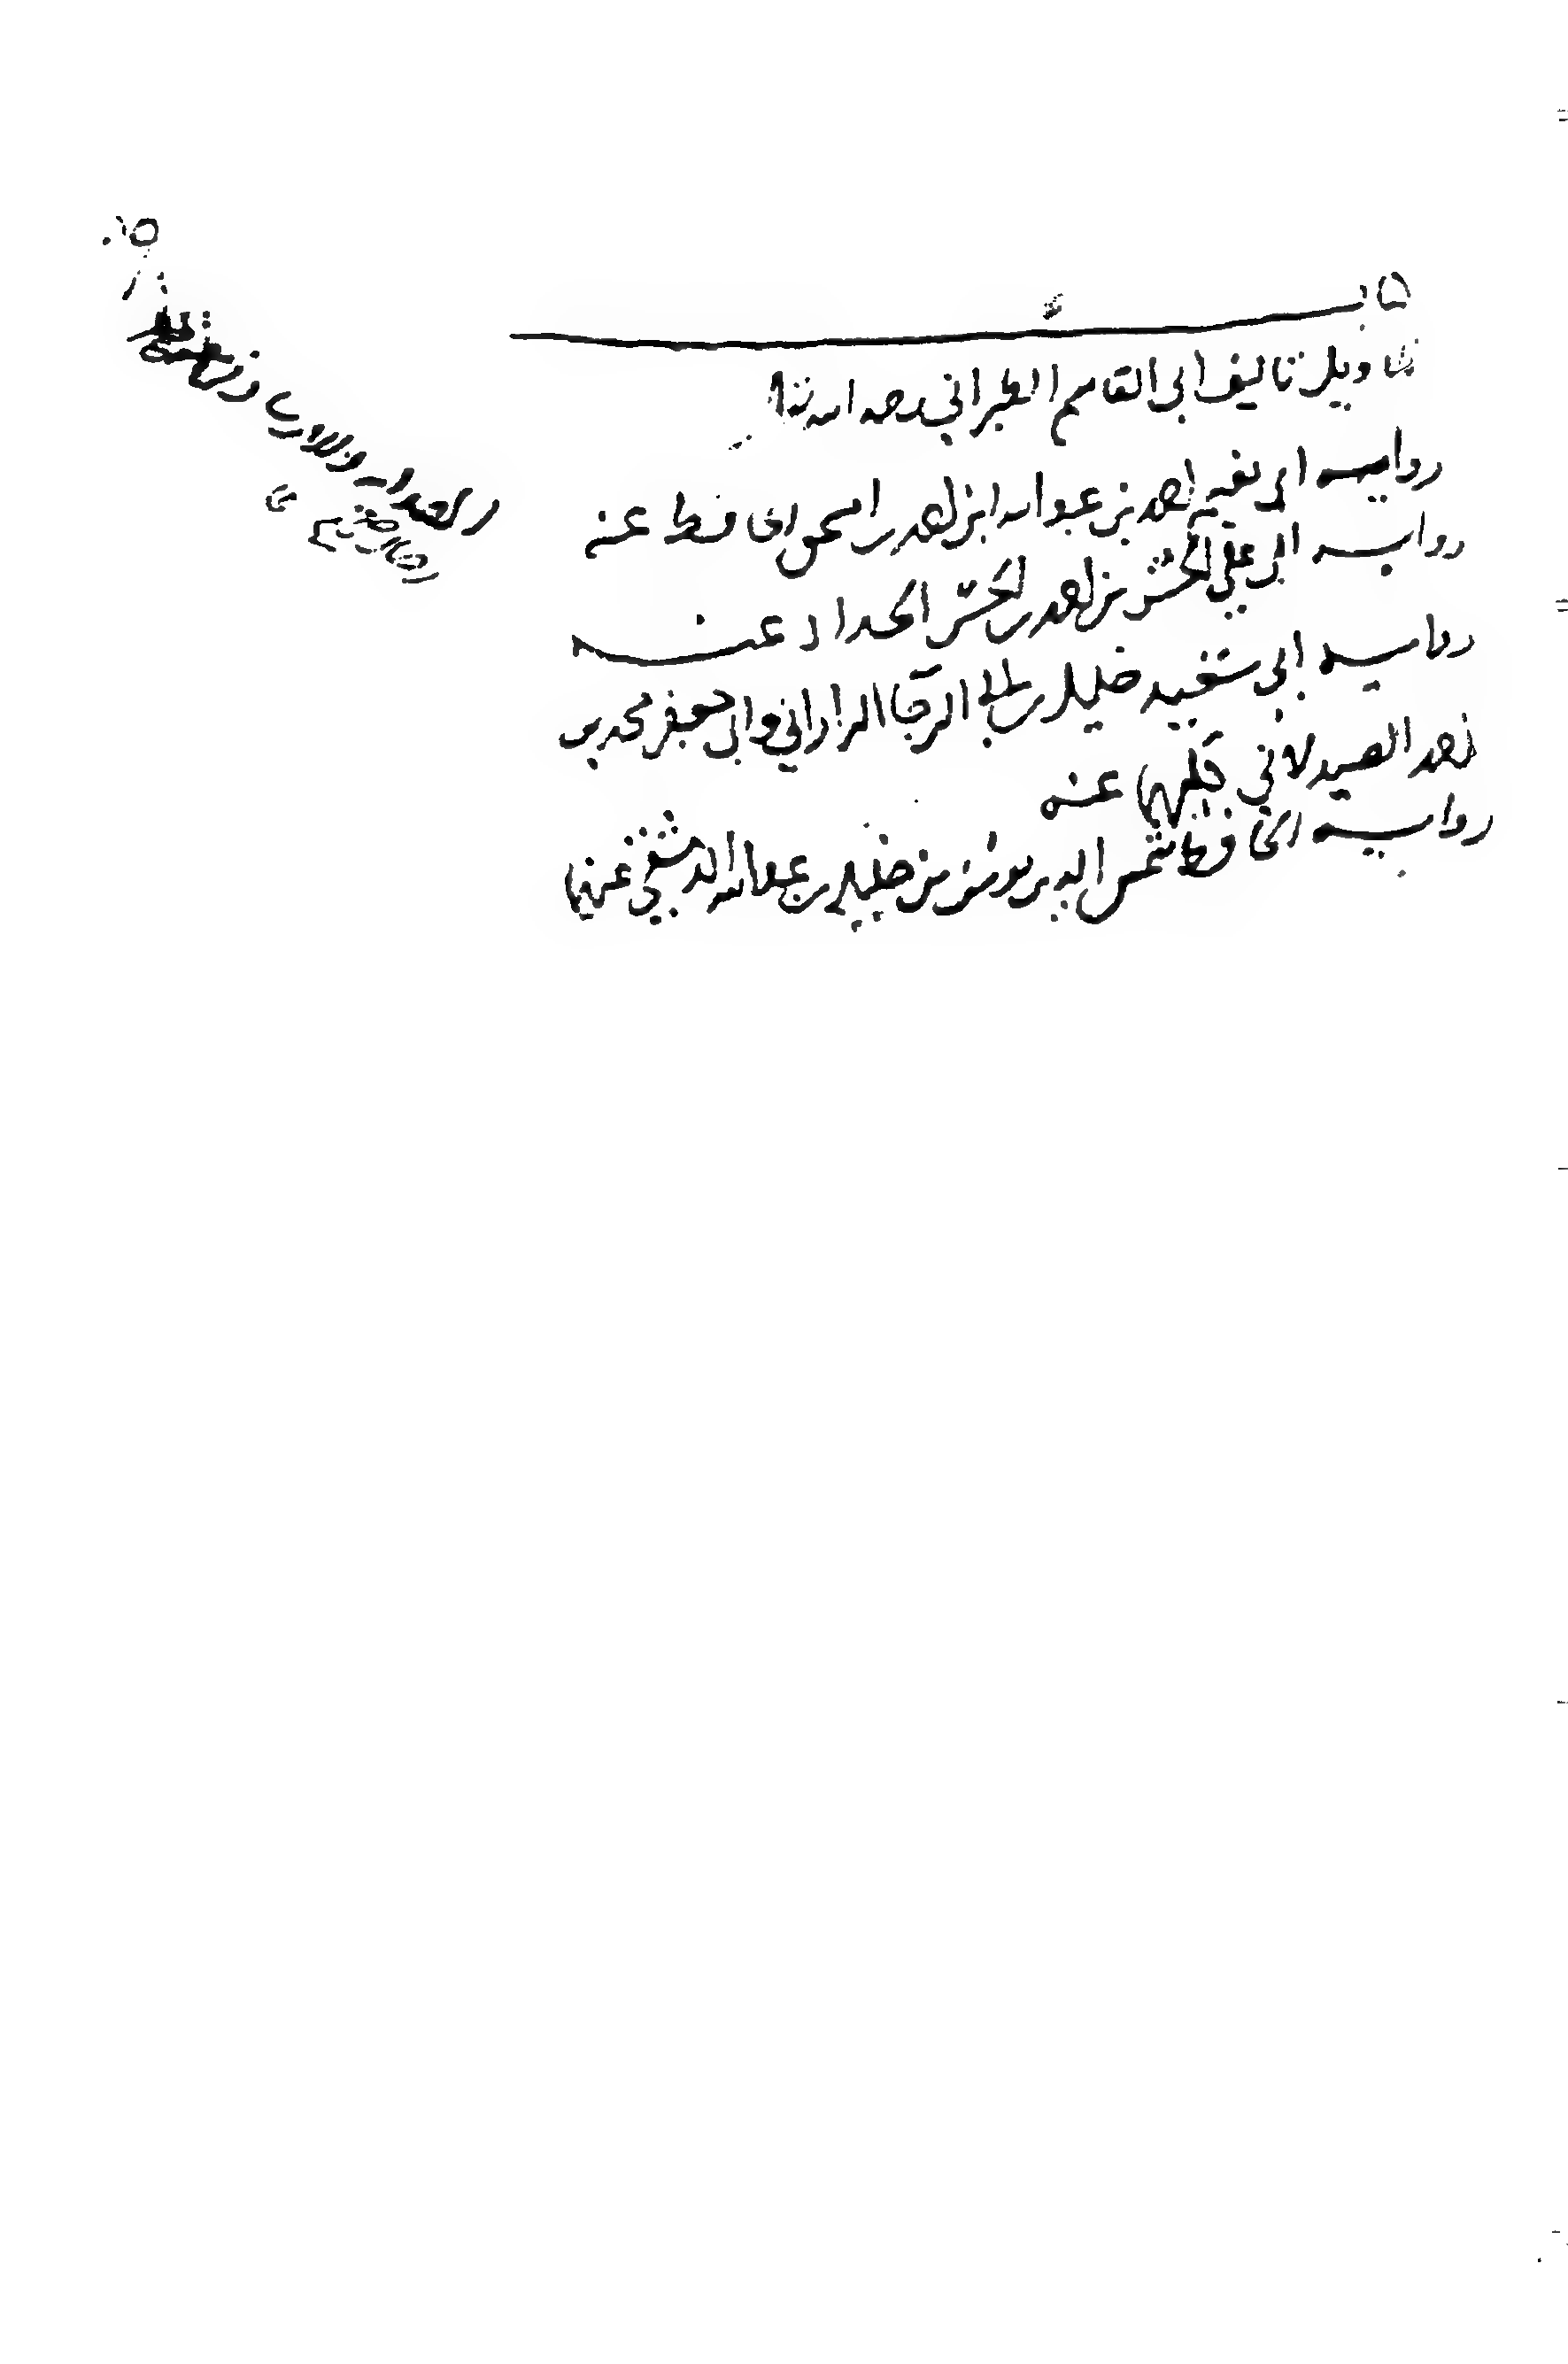 تأويل تاليف ابى القاسم الطبراني رحمه الله تعالى
روايـــة ابى نعيم احمد بن عبد الله ابن احمد بن اسحق الحافظ عنه
روايـــة ابى علي الحسن بن احمد بن الحسن الحداد عنـــه
روايـــة ابى سعيد خليل بن ابى الرجا الراراني وابى جعفر محمد بن
احمد الصيدلاني كليهما عنه
روايـــة الحافظ شمس الدين يوسف بن خليل بن عبد الله الدمشقي عنهما